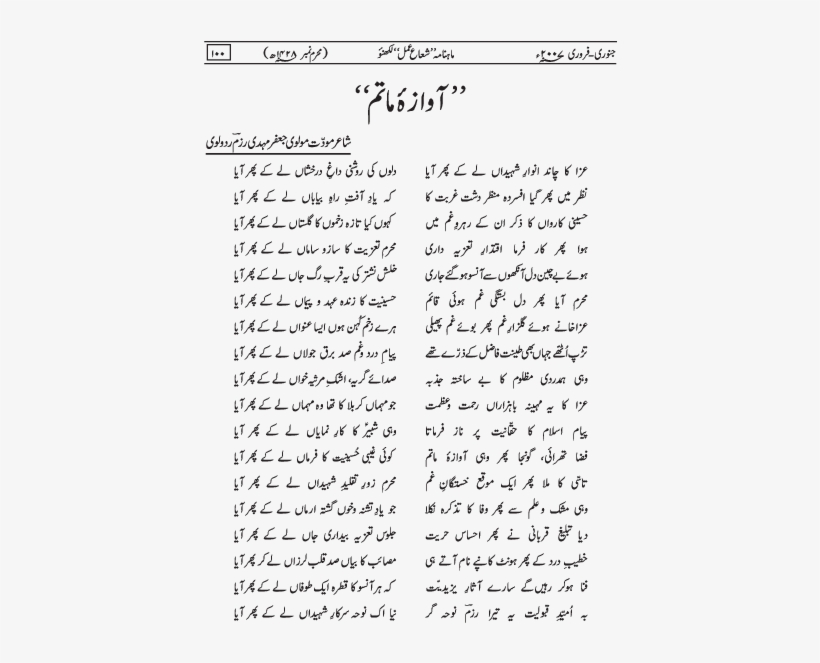 جنوری-فروری ۲۰۰۷ء ماہنامہ "شعاع عمل" لکھنؤ (محرم نمبر ۱۴۲۸ھ) ۱۰۰
"آوازۂ ماتم"
شاعر مودّت مولوی جعفر مہدی رزمؔ ردولوی
عزا کا چاند انوارِ شہیداں لے کے پھر آیا دلوں کی روشنی داغِ درخشاں لے کے پھر آیا
نظر میں پھر گیا افسردہ منظر دشت غربت کا کہ یادِ آفتِ راہِ بیاباں لے کے پھر آیا
حسینی کارواں کا ذکر ان کے رہروِ غم میں کہوں کیا تازہ زخموں کا گلستاں لے کے پھر آیا
ہوا پھر کار فرما اقتدارِ تعزیہ داری محرم تعزیت کا ساز و ساماں لے کے پھر آیا
ہوئے بے چین دل آنکھوں سے آنسو ہو گئے جاری خلش نشتر کی یہ قربِ رگ جاں لے کے پھر آیا
محرم آیا پھر دل بستگی غم ہوئی قائم حسینیت کا زندہ عہد و پیماں لے کے پھر آیا
عزاخانے ہوئے گلزارِ غم پھر بوئے غم پھیلی ہرے زخم کہن ہوں ایسا عنواں لے کے پھر آیا
تڑپ اُٹھے جہاں بھی طینت فاضل کے ذرّے تھے پیامِ درد و غم صد برق جولاں لے کے پھر آیا
وہی ہمدردی مظلوم کا بے ساختہ جذبہ صدائے گریہ، اشکِ مرثیہ خواں لے کے پھر آیا
عزا کا یہ مہینہ باہزاراں رحمت و عظمت جو مہماں کربلا کا تھا وہ مہماں لے کے پھر آیا
پیام اسلام کا حقّانیت پر ناز فرماتا وہی شبیرؑ کا کارِ نمایاں لے کے پھر آیا
فضا تھرائی، گونجا پھر وہی آوازۂ ماتم کوئی غیبی حُسینیت کا فرماں لے کے پھر آیا
تاسّی کا ملا پھر ایک موقع خستگانِ غم محرم زورِ تقلیدِ شہیداں لے کے پھر آیا
وہی مشک و علم سے پھر وفا کا تذکرہ نکلا جو یادِ تشنہ و خوں گشتہ ارماں لے کے پھر آیا
دیا تبلیغِ قربانی نے پھر احساس حریت جلوس تعزیہ بیداری جاں لے کے پھر آیا
خطیبِ درد کے پھر ہونٹ کانپے نام آتے ہی مصائب کا بیاں صد قلب لرزاں لے کر پھر آیا
فنا ہوکر رہیں گے سارے آثارِ یزیدیّت کہ ہر آنسو کا قطرہ ایک طوفاں لے کے پھر آیا
بہ اُمّیدِ قبولیت یہ تیرا رزمؔ نوحہ گر نیا اک نوحہ سرکارِ شہیداں لے کے پھر آیا